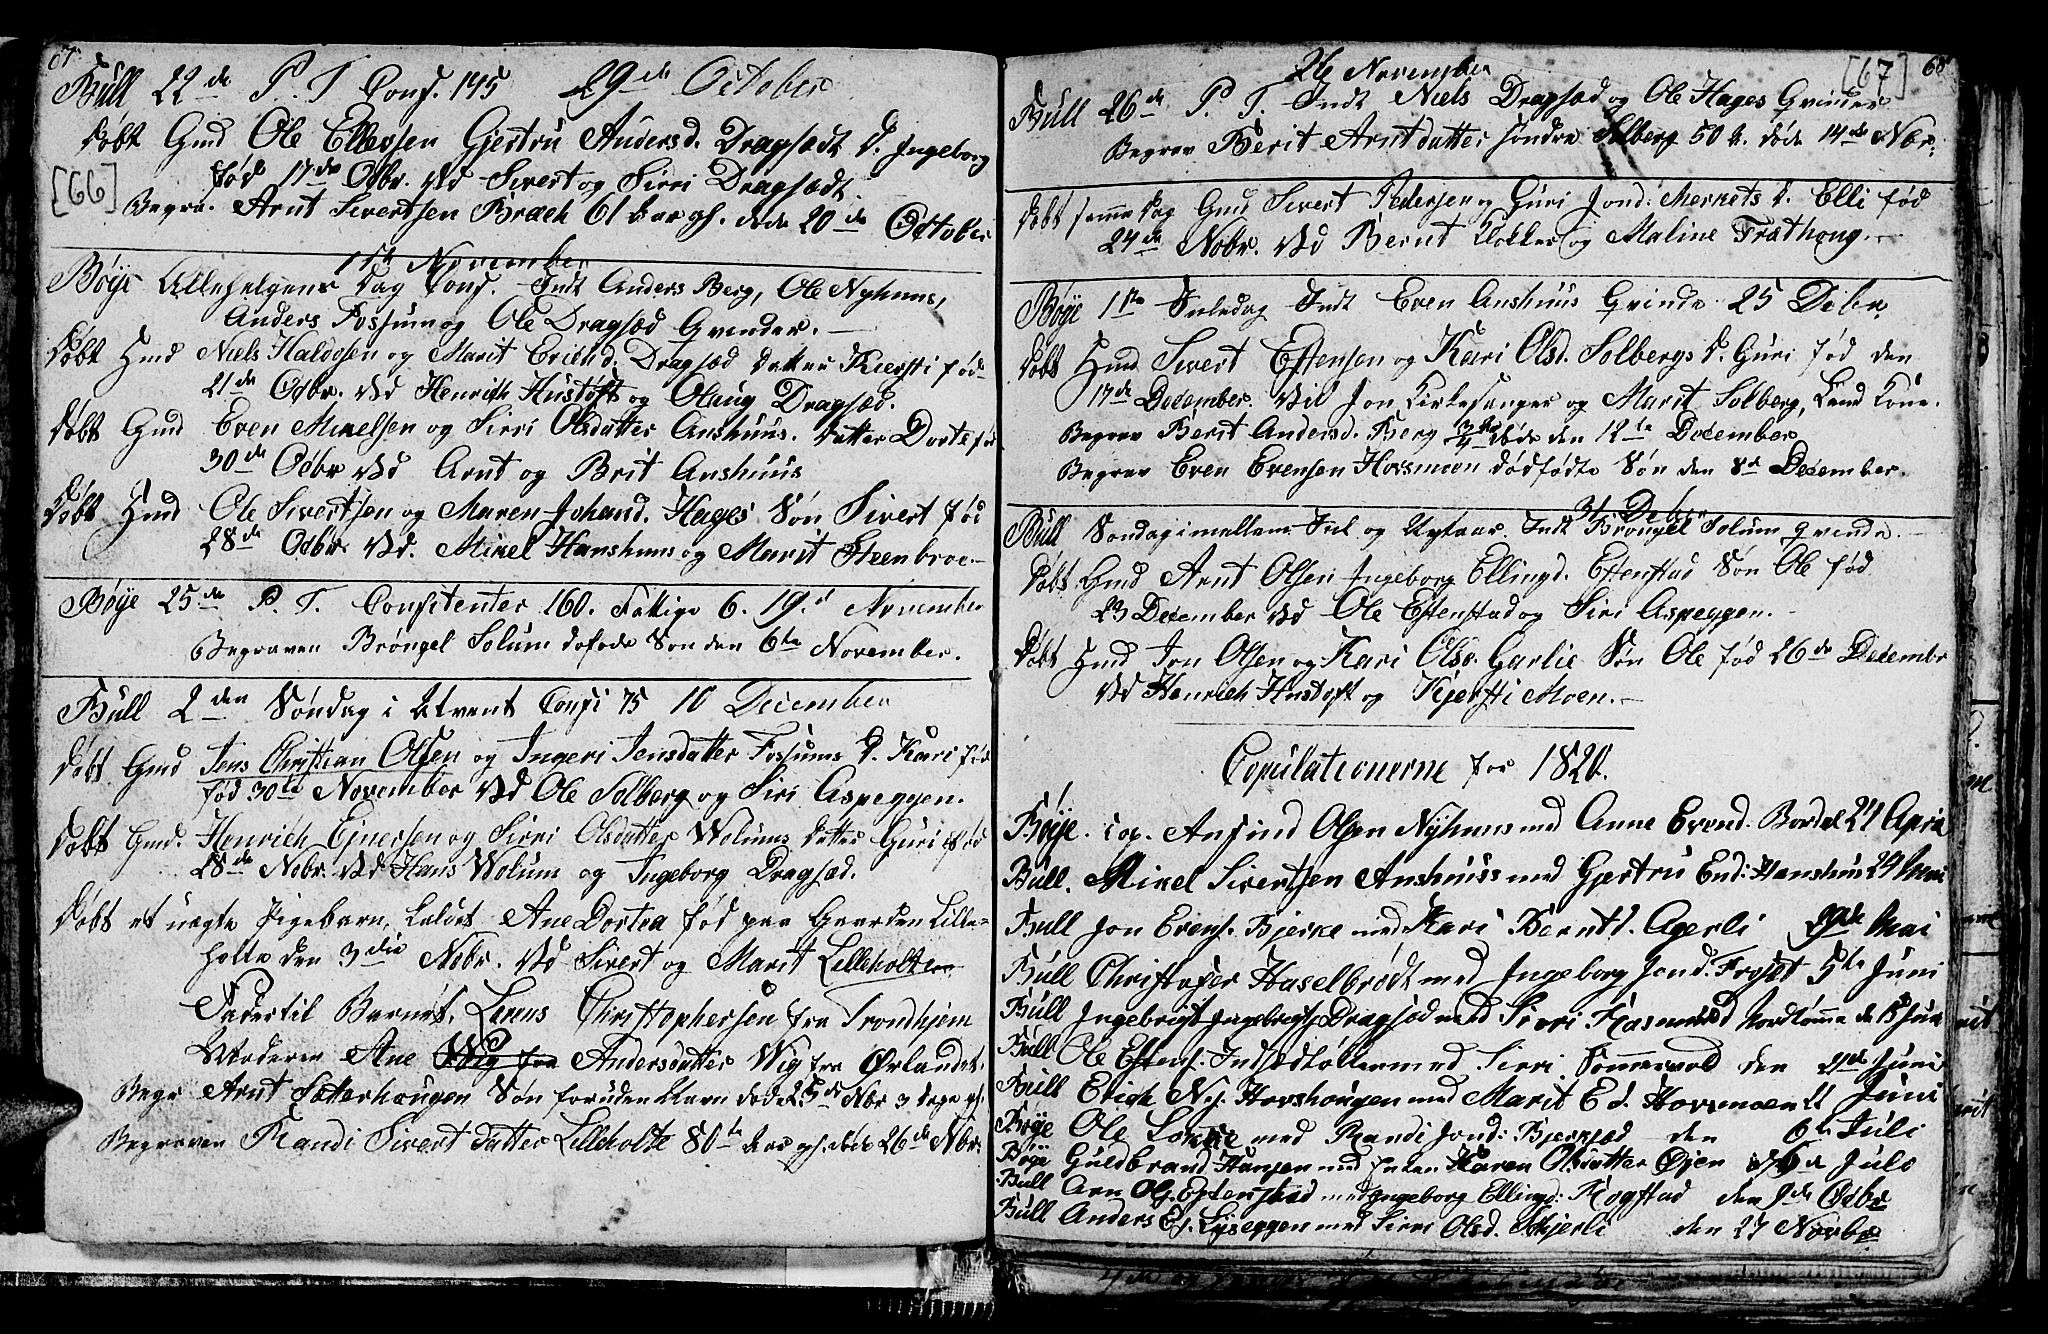 67.
Bull 22de P. T. Conf. 145 29de October
Døbt Gmd Ole Ellefsen Gjertru Andersd. Dragsædt D. Ingeborg
[66]
fød 17de Octbr. Vd Sivert og Sirri Dragsædt
Begra. Arnt Sivertsen Bræch 61 Aar gl. døde 20de October
1ste November
Bøye Allehelgens Dag Conf. Indt Anders Berg, Ole Nyhuus,
Anders Fossum og Ole Dragsæd Qvinder.
Døbt Hmd Niels Haldosen og Marit Erichd. Dragsæd Datter Kiersti fød
21de Octbr. Vd Henrich Hustoft og Olaug Dragsæd.
Døbt Gmd Even Mikelsen og Sirri Olsdatter Aushuus. Datter Dorte fød
30de Octbr Vd Arnt og Brit Aushuus
Døbt Hmd Ole Sivertsen og Maren Johand. Hages Søn Sivert fød
28de Octbr. Vd. Mikel Hanshuus og Marit Steenbroe.
Bøye 25de P. T. Confitenter 160. Fattige 6. 19de November
Begraven Brøngel Solum døføde Søn den 6te November.
Bull 2den Søndag i Advent Confi 75 10 December
Døbt Gmd Jens Christian Olsen og Ingeri Jensdatter Fossums D. Kari fød
fød 30te November Vd Ole Solberg og Siri Aspeggen.
Døbt Gmd. Henrich Ejnersen og Sirri Olsdatter Wolums Datter Guri fød
28de Nobr. Vd Hans Wolum og Ingeborg Dragsæd.
Døbt et uægte Pigebarn, kaldet Ane Dortea fød paa Gaarden Lille-
holte den 3die Nobr. Vd Sivert og Marit Lilleholten
Fader til Barnet, Lorens Christophersen fra Trondhjem
Moderen Ane Wig fra Andersdatter Wig fra Ørlandet.
Begr Arnt Sætterhougen Søn foruden Navn døde 25de Nbr 3 Dage gl.
Begraven Randi Sivert Datter Lilleholte 80te Aar gl. døde 26de Nbr.
26 November
[67] 68
Bull 26de P. T. Indt Niels Dragsæd og Ole Hages Qvinder
Begrav Berit Arntdatter søndre Solberg 50 A. døde 14de Nbr.
Døbt samme Dag Gmd Sivert Pedersen og Guri Jond: Merkets D. Elli fød
24de Nobr. Vd Bernt Klokker og Maline Fræthoug.
Bøye 1ste Juledag Indt Even Aushuus Qvinde 25 Debr.
Døbt Hmd Sivert Estensen og Kari Olsd. Solbergs D. Guri fød den
17de December. Vid Jon Kirkesanger og Marit Solberg, Lend Kone.
Begrav Berit Andersd. Berg 3/4 Aar døde den 12te December
Begrav Even Evensen Horsmoen dødfødte Søn den 8de December.
31 Debr
Bull Søndag imellem Jul og Nytaar. Indt Brøngel Solum Qvinde.
Døbt Gmd Arnt Olsen Ingeborg Ellingd. Estenstad Søn Ole fød
23 December Vd Ole Estenstad og Siri Aspeggen.
Døbt Hmd Jon Olsen og Kari Olsd. Garlie Søn Ole fød 26de Decembr
Vd Henrich Hustoft og Kjersti Moen.
Copulationerne for 1820.
Bøye. cop. Anfind Olsen Nyhuus med Anne Evend. Bordal 24 Apri
Bull. Mikel Sivertsen Aushuus med Gjertru End: Hanshus 24 Mai
Bull Jon Evens. Bjerke med Kari Berntd. Agerli 29de Mai
Bull Christofer Haselbrødt med Ingeborg Jond: Frøset 5te Juni
Bull Ingebrigt Ingebrigts Dragsæd med Sirri Rasmusd Nordtømme de 18 Jun
Bull Ole Estens: Indsetløkken med Sirri Sommervold den 21de Juni
Bull Erich Nij: Horshougen med Marit Ed. Horsmoen 22 Juni
Bøye Ole Løkke med Randi Jond: Bjerksæd den 6te Juli
Bøye Guldbrand Hansen med Enken Karen Olsdatter Øjen 16de Juli
Bull Arn Ols. Estenstad med Ingeborg Ellingd: Rogstad den 1de Octbr
Bull Anders E. Lyseggen med Sirri Olsd. Skjerli den 27 Novbr